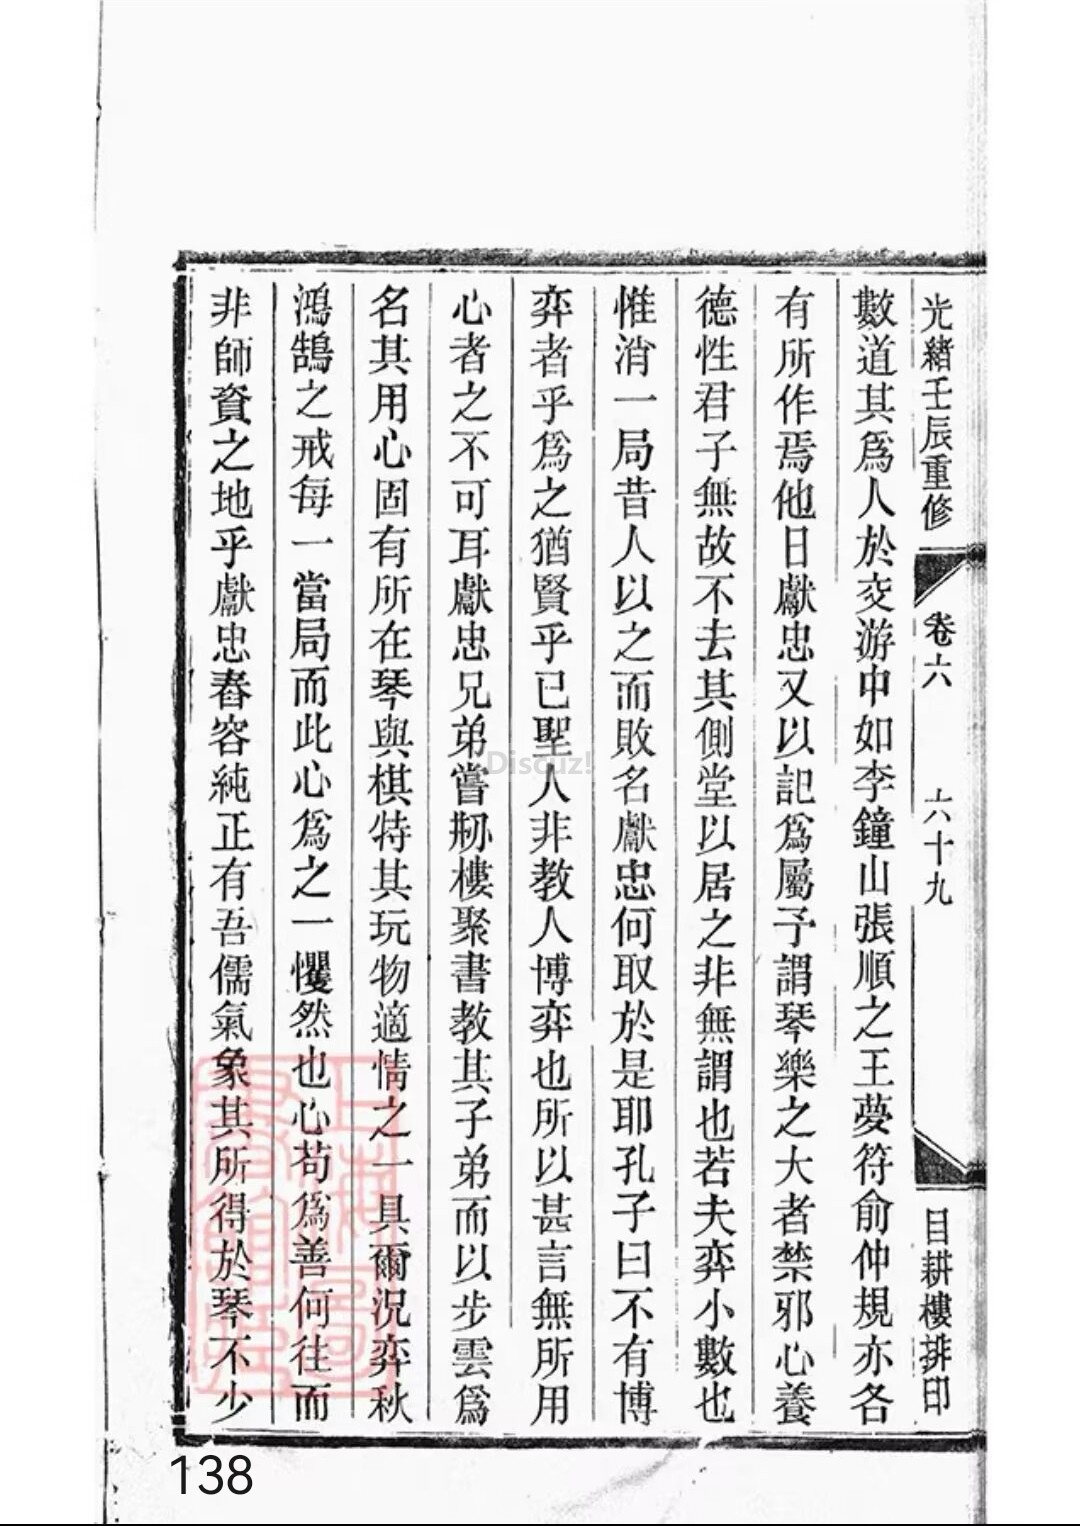 光緒壬辰重修 卷六 六十九 目耕樓排印
數道其爲人於交游中如李鐘山張順之王夢符俞仲規亦各
有所作焉他日獻忠又以記爲屬予謂琴樂之大者禁邪心養
德性君子無故不去其側堂以居之非無謂也若夫弈小數也
惟消一局昔人以之而敗名獻忠何取於是耶孔子曰不有博
弈者乎爲之猶賢乎已聖人非教人博弈也所以甚言無所用
心者之不可耳獻忠兄弟嘗剏樓聚書教其子弟而以步雲爲
名其用心固有所在琴與棋特其玩物適情之一具爾況弈秋
鴻鵠之戒每一當局而此心爲之一戄然也心苟爲善何往而
非師資之地乎獻忠舂容純正有吾儒氣象其所得於琴不少
Discuz!
138